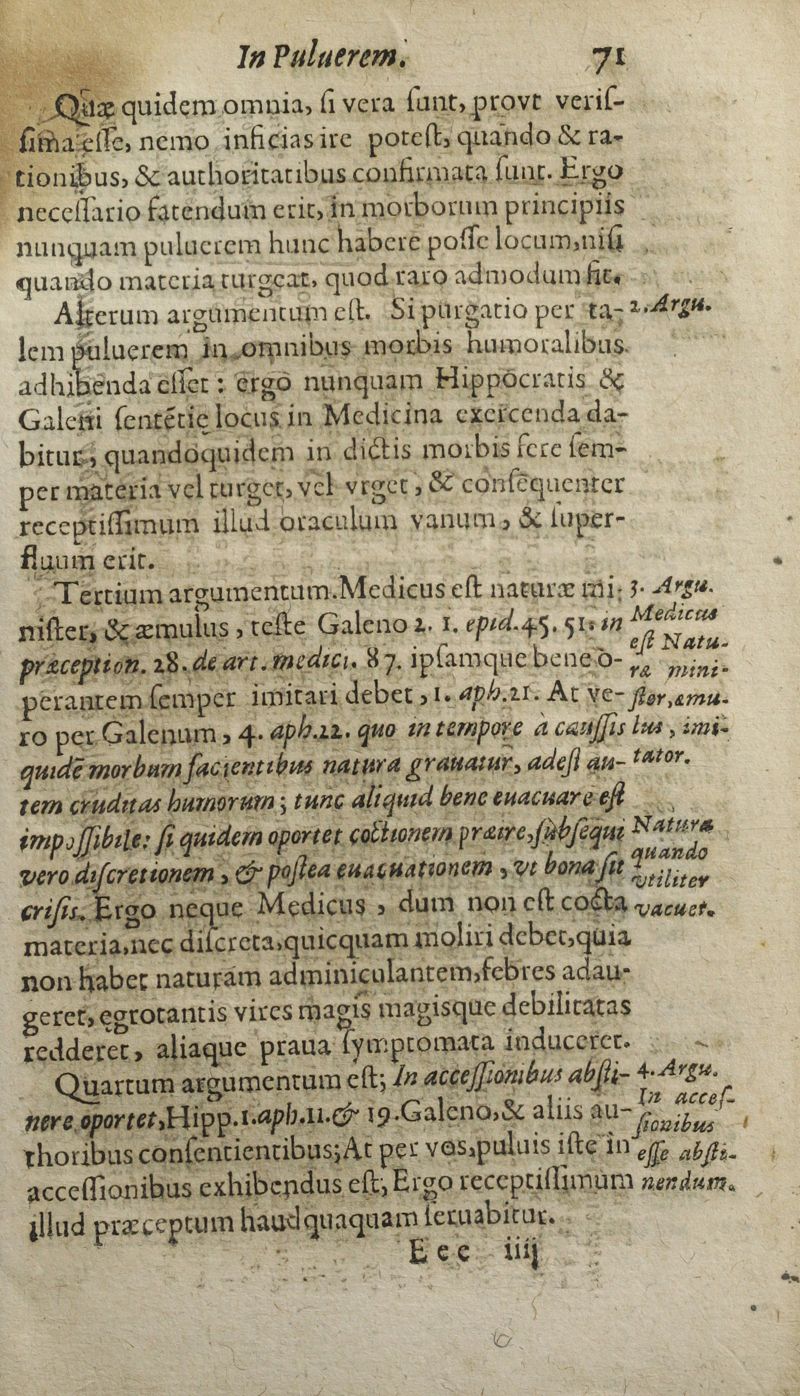 In Puluerem. 71
Quæ quidem omnia, ſi vera ſunt, provt veriſ-
ſima eſſe, nemo inficias ire poteſt, quando & ra-
tionibus, & authoritatibus confirmata ſunt. Ergo
neceſſario fatendum erit, in morborum principiis
nunquam puluerem hunc habere poſſe locum, niſi
quando materia turgeat, quod raro admodum fit.
Alterum argumentum eſt. Si purgatio per ta-
2. Argu.
lem puluerem in omnibus morbis humoralibus
adhibenda eſſet: ergo nunquam Hippocratis &
Galeni ſentētię locus in Medicina exercenda da-
bitur, quandoquidem in dictis morbis fere ſem-
per materia vel turget, vel vrget, & conſequenter
receptiſſimum illud oraculum vanum, & ſuper-
fluum erit.
Tertium argumentum. Medicus eſt naturæ mi-
3. Argu.
niſter, & æmulus, teſte Galeno 2. 1. epid. 45. 51. in
Medicus
præception. 28. de art. medici. 87. ipſamque bene o-
eſt Natu-
ræ mini-
perantem ſemper imitari debet, 1. aph. 21. At ve-
ſter, æmu-
ro per Galenum, 4. aph. 22. quo in tempore a cauſſis ijs, imi-
quidē morbum facientibus natura grauatur, adeſt au-
tator.
tem cruditas humorum; tunc aliquid bene euacuare eſt
impoſſibile: ſi quidem oportet coctionem præire, ſubſequi
Natura
vero diſcretionem, & poſtea euacuationem, vt bona ſit
quando
vtiliter
criſis. Ergo neque Medicus, dum non eſt cocta
vacuet.
materia, nec diſcreta, quicquam moliri debet, quia
non habet naturam adminiculantem, febres adau-
geret, egrotantis vires magis magisque debilitatas
redderet, aliaque praua ſymptomata induceret.
Quartum argumentum eſt; In acceſſionibus abſti-
4. Argu.
nere oportet, Hipp. 1. aph. 11. & 19. Galeno, & aliis au-
In acceſ-
ſionibus
thoribus conſentientibus; At per vos, puluis iſte in
eſſe abſti-
acceſſionibus exhibendus eſt, Ergo receptiſſimum
nendum.
illud præceptum haudquaquam ſeruabitur.
Eee iiij